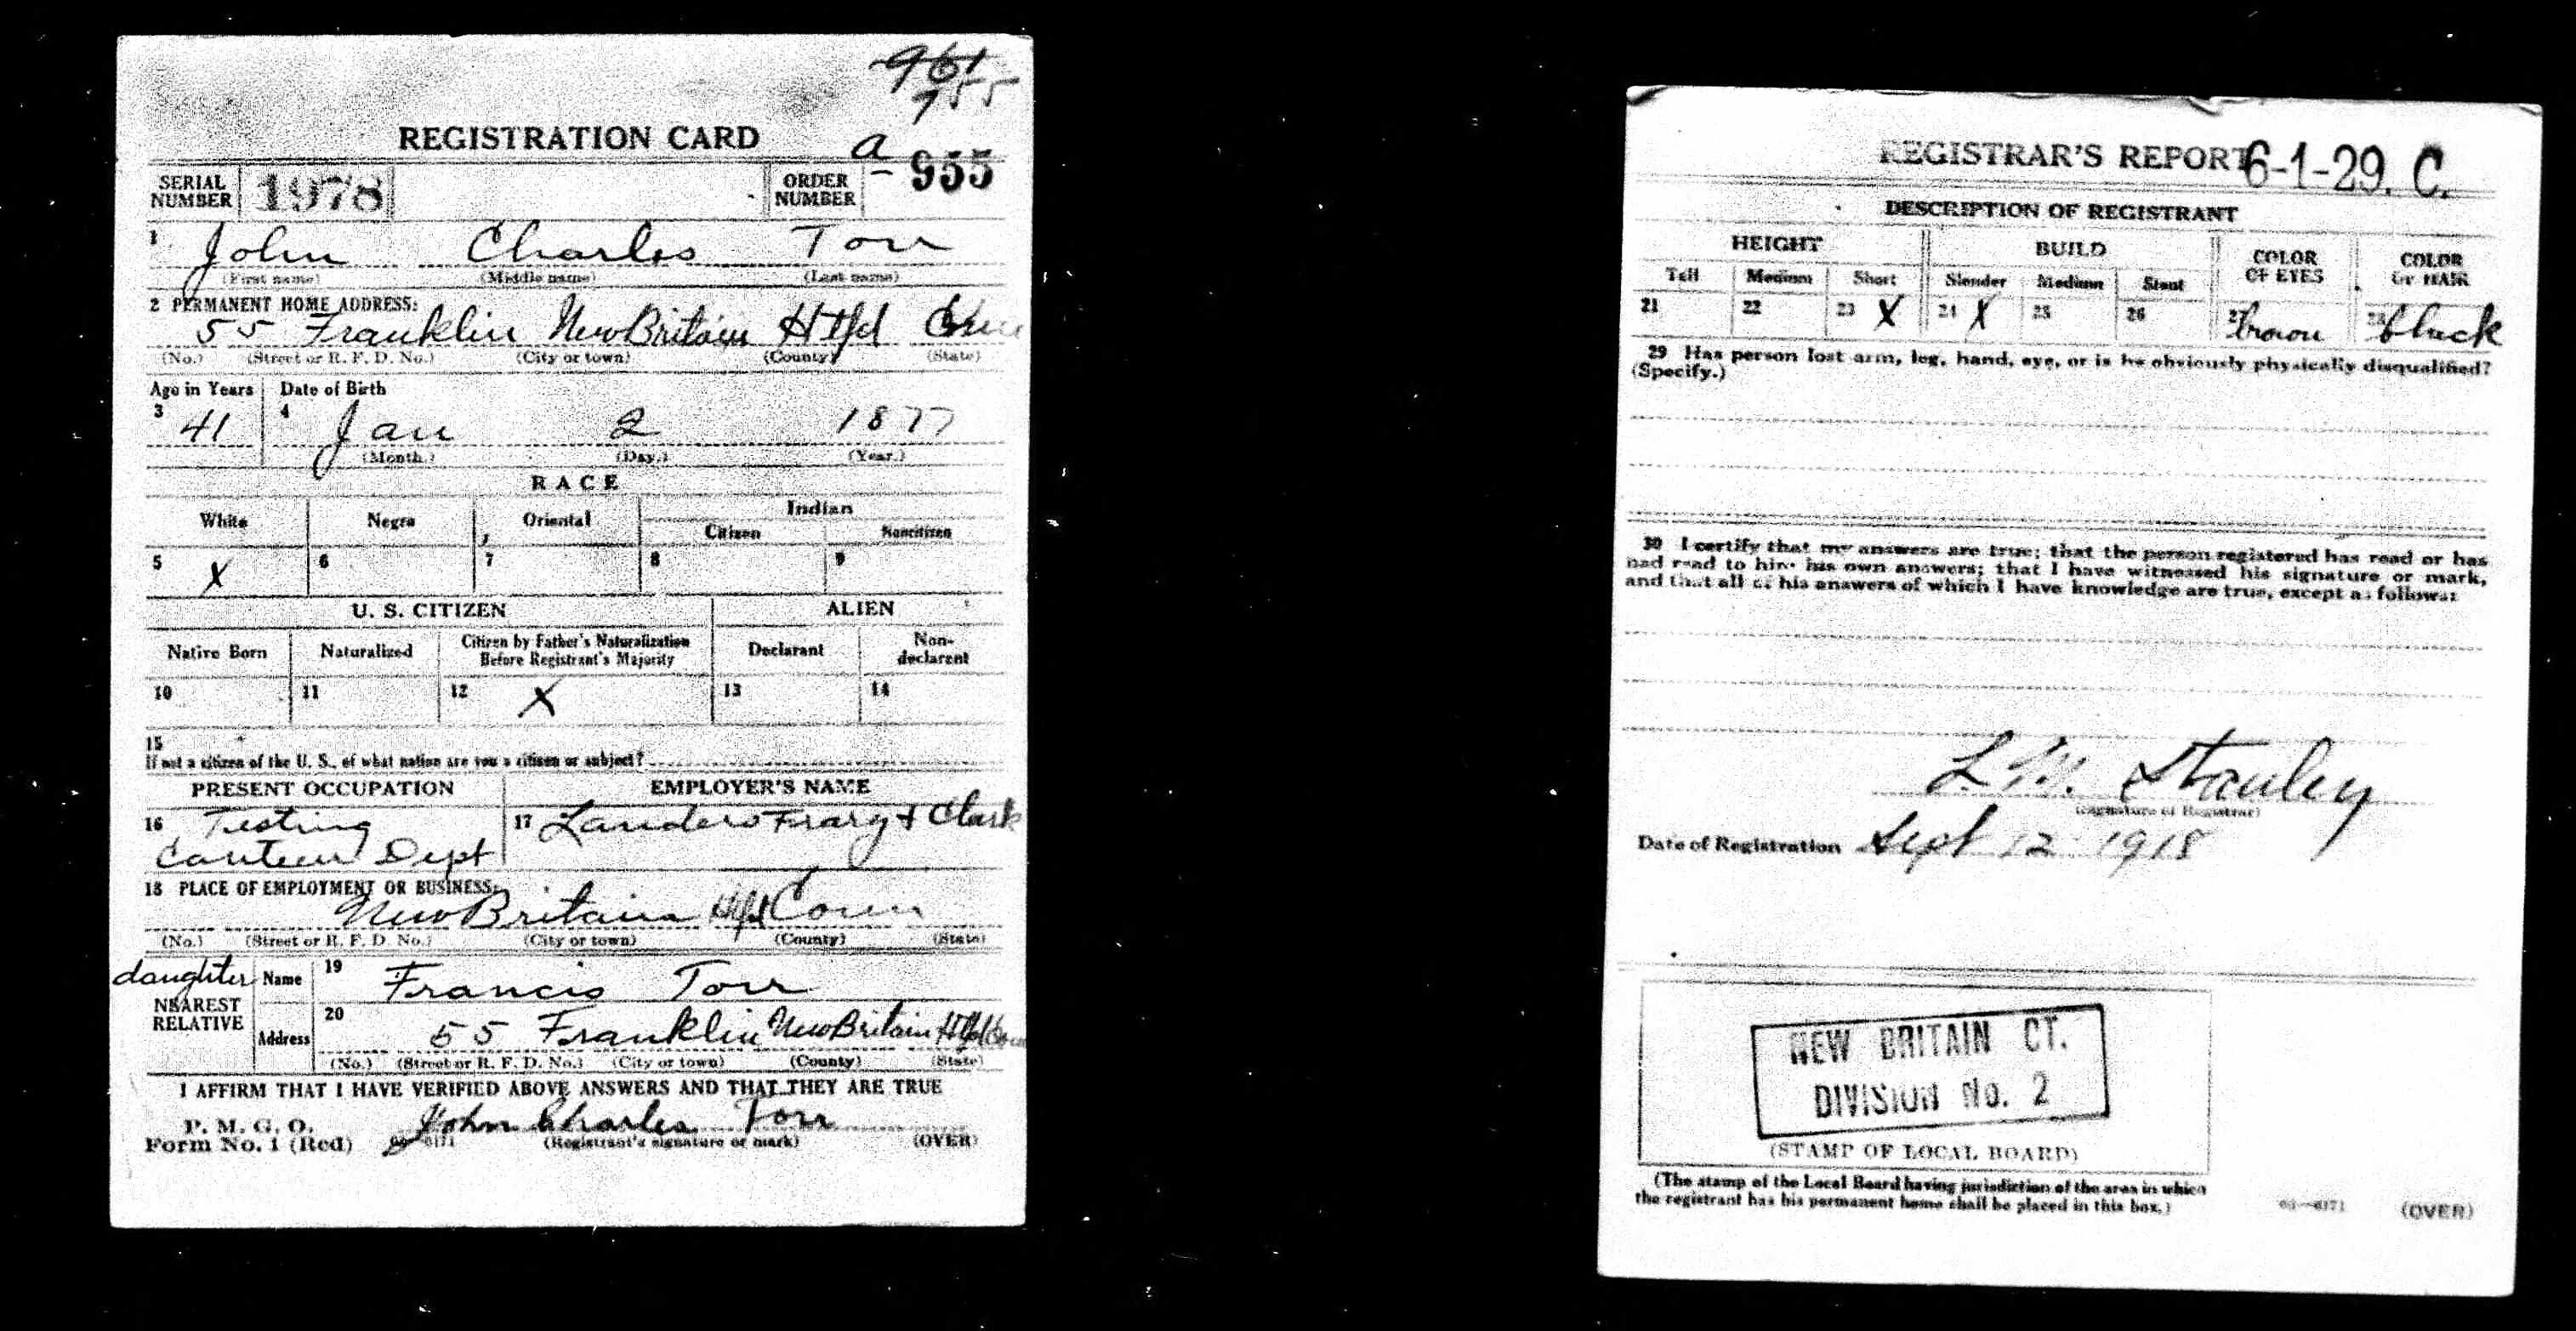 961
955
REGISTRATION CARD
SERIAL NUMBER 1978 ORDER NUMBER a- 955
1 John Charles Torr
(First name) (Middle name) (Last name)
2 PERMANENT HOME ADDRESS:
55 Franklin New Britain Htfd Conn
(No.) (Street or R. F. D. No.) (City or town) (County) (State)
Age in Years Date of Birth
3 41 4 Jan 2 1877
(Month.) (Day.) (Year.)
RACE
White Negro Oriental Indian
Citizen Noncitizen
5 X 6 7 8 9
U. S. CITIZEN ALIEN
Native Born Naturalized Citizen by Father's Naturalization Before Registrant's Majority Declarant Non-declarant
10 11 12 X 13 14
15
If not a citizen of the U. S., of what nation are you a citizen or subject?
PRESENT OCCUPATION EMPLOYER'S NAME
16 Testing 17 Landers Frary & Clark
Canteen Dept
18 PLACE OF EMPLOYMENT OR BUSINESS:
New Britain Htfd Conn
(No.) (Street or R. F. D. No.) (City or town) (County) (State)
daughter Name 19 Francis Torr
NEAREST RELATIVE
Address 20 55 Franklin New Britain Htfd Conn
(No.) (Street or R. F. D. No.) (City or town) (County) (State)
I AFFIRM THAT I HAVE VERIFIED ABOVE ANSWERS AND THAT THEY ARE TRUE
P. M. G. O. John Charles Torr
Form No. 1 (Red) 03-6171 (Registrant's signature or mark) (OVER)
REGISTRAR'S REPORT 6-1-29. C.
DESCRIPTION OF REGISTRANT
HEIGHT BUILD COLOR OF EYES COLOR OF HAIR
Tall Medium Short Slender Medium Stout
21 22 23 X 24 X 25 26 27 brown 28 black
29 Has person lost arm, leg, hand, eye, or is he obviously physically disqualified?
(Specify.)
30 I certify that my answers are true; that the person registered has read or has
had read to him his own answers; that I have witnessed his signature or mark,
and that all of his answers of which I have knowledge are true, except as follows:
L. M. Stanley
(Signature of Registrar)
Date of Registration Sept 12 1918
NEW BRITAIN CT.
DIVISION No. 2
(STAMP OF LOCAL BOARD)
(The stamp of the Local Board having jurisdiction of the area in which
the registrant has his permanent home shall be placed in this box.)
03-6171 (OVER)